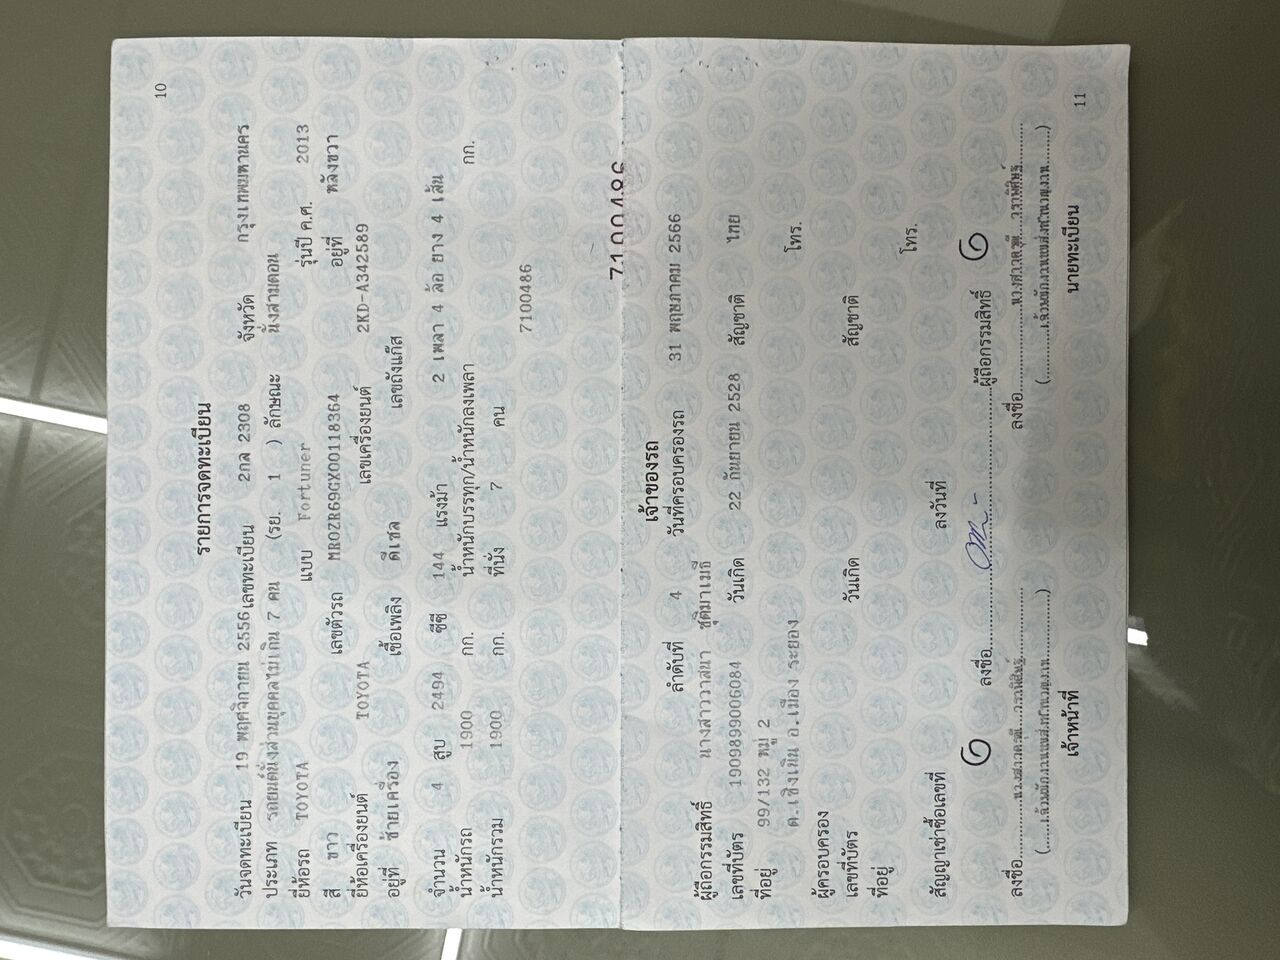 10
รายการจดทะเบียน
วันจดทะเบียน 19 พฤศจิกายน 2556 เลขทะเบียน 2กล 2308 จังหวัด กรุงเทพมหานคร
ประเภท รถยนต์นั่งส่วนบุคคลไม่เกิน 7 คน (รย. 1 ) ลักษณะ นั่งสามตอน
ยี่ห้อรถ TOYOTA แบบ Fortuner รุ่นปี ค.ศ. 2013
สี ขาว เลขตัวรถ MR0ZR69GX00118364 อยู่ที่ หลังขวา
ยี่ห้อเครื่องยนต์ TOYOTA เลขเครื่องยนต์ 2KD-A342589
อยู่ที่ ซ้ายเครื่อง เชื้อเพลิง ดีเซล เลขถังแก๊ส
จำนวน 4 สูบ 2494 ซีซี 144 แรงม้า 2 เพลา 4 ล้อ ยาง 4 เส้น
น้ำหนักรถ 1900 กก. น้ำหนักบรรทุก/น้ำหนักลงเพลา กก.
น้ำหนักรวม 1900 กก. ที่นั่ง 7 คน
7100486
7100486
เจ้าของรถ
ลำดับที่ 4 วันที่ครอบครองรถ 31 พฤษภาคม 2566
ผู้ถือกรรมสิทธิ์ นางสาววาสนา ชุติมาเมธี
เลขที่บัตร 1909899006084 วันเกิด 22 กันยายน 2528 สัญชาติ ไทย
ที่อยู่ 99/132 หมู่ 2 โทร.
ต.เชิงเนิน อ.เมือง ระยอง
ผู้ครอบครอง
เลขที่บัตร วันเกิด สัญชาติ
ที่อยู่ โทร.
สัญญาเช่าซื้อเลขที่ ลงวันที่
ลงชื่อ ผู้ถือกรรมสิทธิ์
ลงชื่อ ลงชื่อ
เจ้าหน้าที่ นายทะเบียน
11